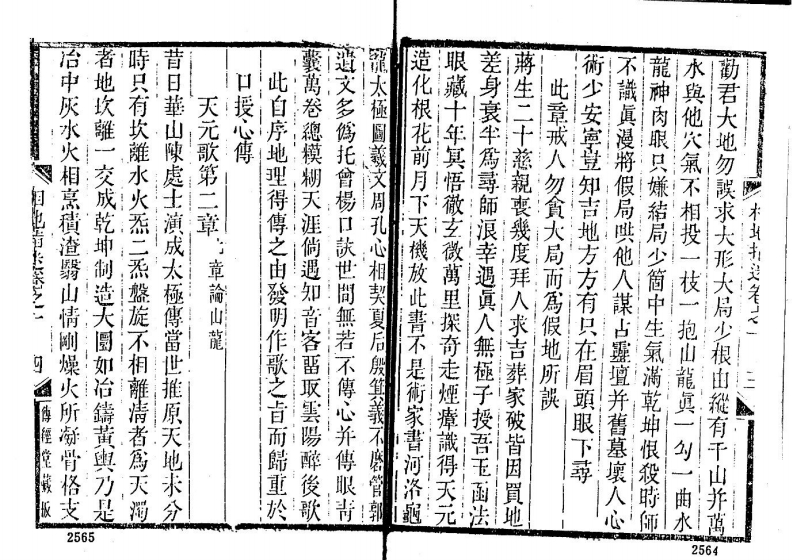 勸君大地勿誤求大形大局少根由縱有千山并萬
水與他穴氣不相投一枝一抱山龍眞一勾一曲水
龍神肉眼只嫌結局少箇中生氣滿乾坤恨殺時師
不識眞漫將假局哄他人謀占靈壇并舊墓壞人心
術少安寧豈知吉地方方有只在眉頭眼下尋
此章戒人勿貪大局而爲假地所誤
蔣生二十慈親喪幾度拜人求吉葬家破皆因買地
差身衰半爲尋師浪幸遇眞人無極子授吾玉函法
眼藏十年冥悟徹玄微萬里探奇走煙瘴識得天元
造化根花前月下天機放此書不是術家書河洛龜
2564
龍太極圖羲文周孔心相契夏后殷箕義不磨管郭
遺文多爲托曾楊口訣世間無若不傳心并傳眼靑
囊萬卷總模糊天涯倘遇知音客畱取雲陽醉後歌
此自序地理得傳之由發明作歌之㫖而歸重於
口授心傳
天元歌第二章 章論山龍
昔日華山陳處士演成太極傳當世推原天地未分
時只有坎離水火炁二炁盤旋不相離淸者爲天濁
者地坎離一交成乾坤制造大圜如冶鑄黃輿乃是
冶中灰水火相烹積渣翳山情剛燥火所凝骨格支
四
傳經堂藏板
2565